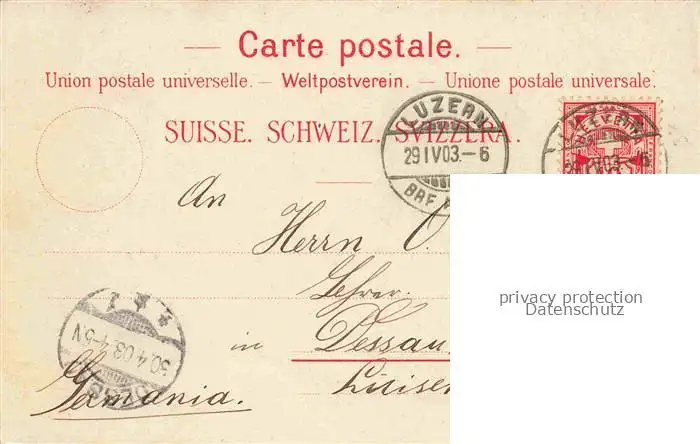 — Carte postale. —
Union postale universelle. — Weltpostverein. — Unione postale universale.
SUISSE. SCHWEIZ. SVIZZERA.
LUZERN
29 IV 03.–6
BRF
LUZERN
29 IV 03.–6
An
Herrn O.
Lehrer.
in Dessau
Luisen
Germania.
30.4.03.4-5N
privacy protection
Datenschutz